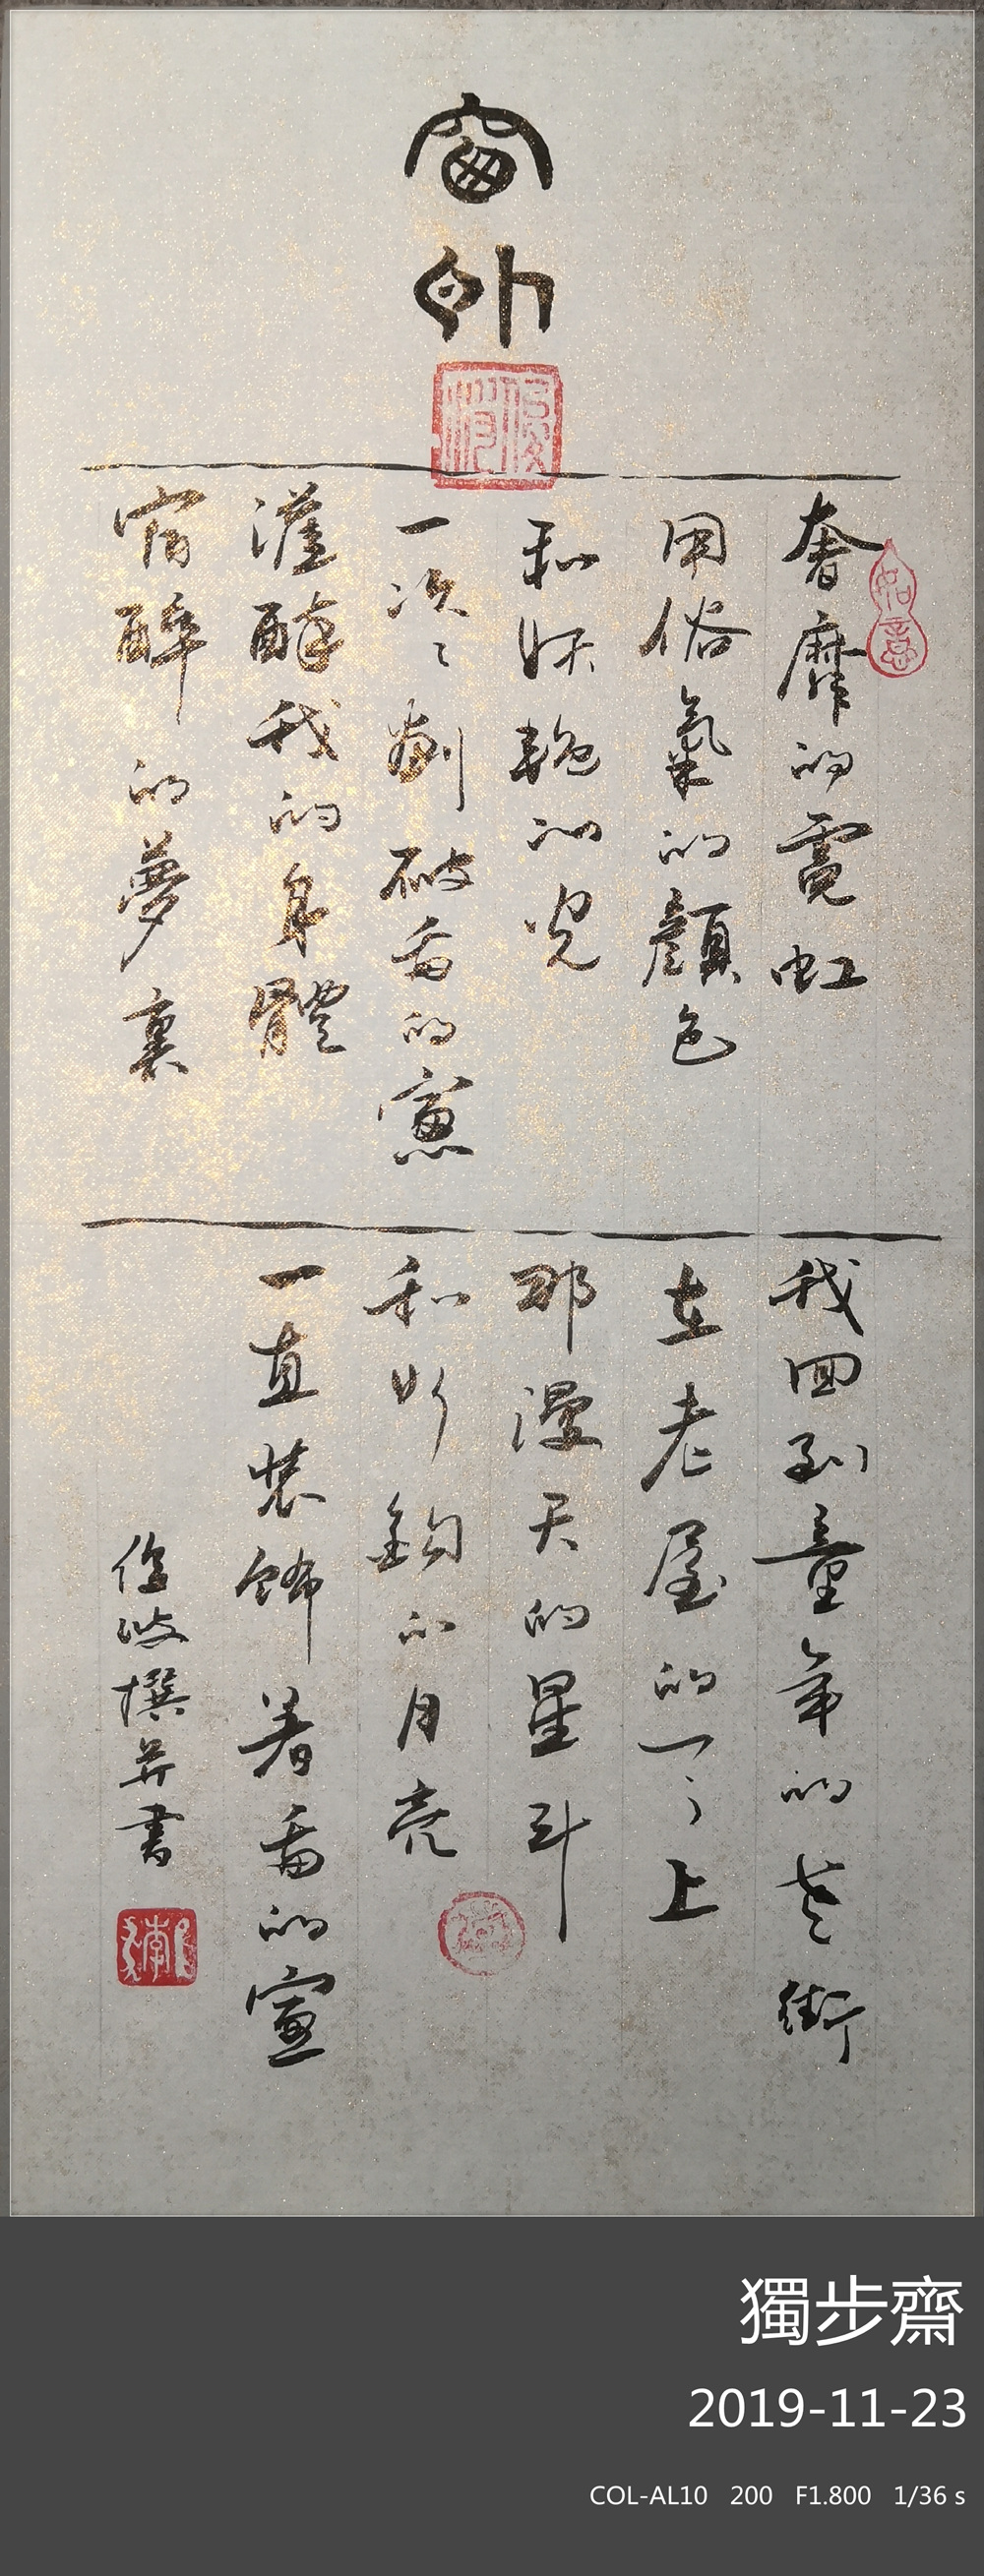 窗
外
奢靡的霓虹
用俗氣的顏色
和妖艷的光
一次〻劃破的窻
灌醉我的身體
宿醉的夢裏
如意
我回到童年的老街
在老屋的上
那漫天的星斗
和鈎的月亮
一直裝飾著的窻
俊波撰并書
獨步齋
2019-11-23
COL-AL10 200 F1.800 1/36 s